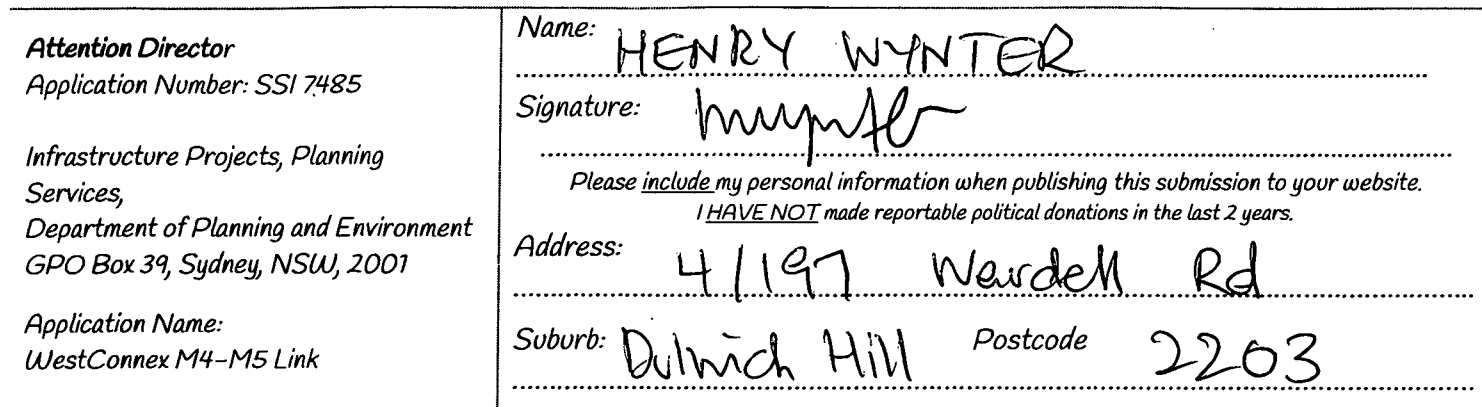 Attention Director
Application Number: SSI 7485
Infrastructure Projects, Planning
Services,
Department of Planning and Environment
GPO Box 39, Sydney, NSW, 2001
Application Name:
WestConnex M4-M5 Link
Name: HENRY WYNTER
Signature:
Please include my personal information when publishing this submission to your website.
I HAVE NOT made reportable political donations in the last 2 years.
Address: 4/197 Wardell Rd
Suburb: Dulwich Hill Postcode 2203